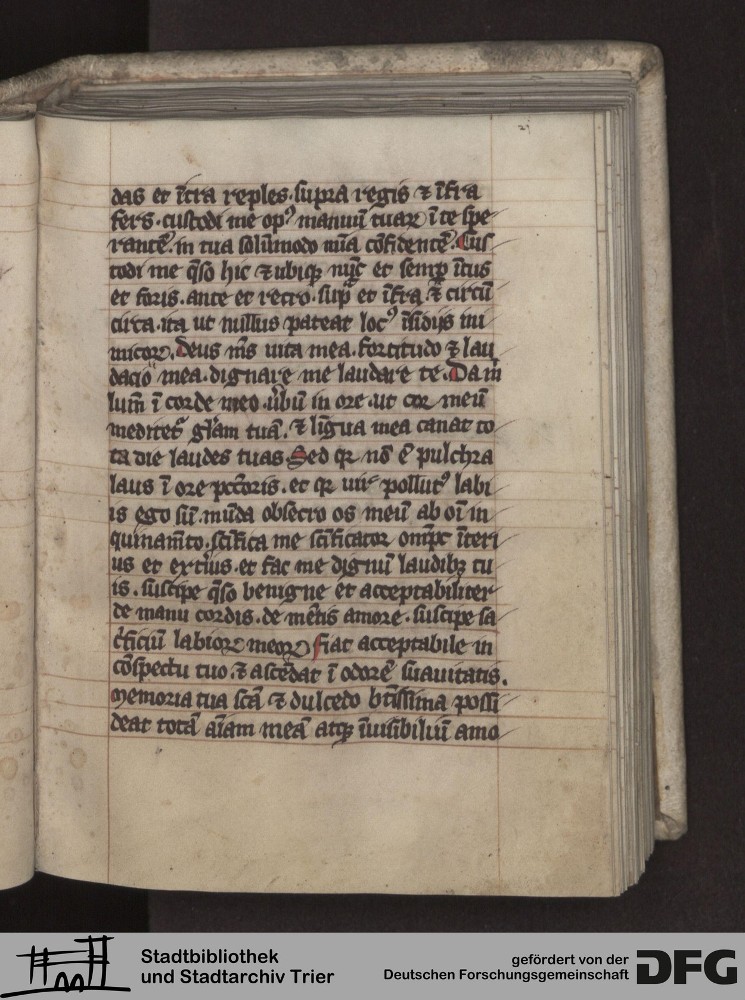 21
das et īt̄ra reples. supra regis ⁊ īfra
fers. custodi me opꝰ manuū tuaꝝ ī te spe
rantē. in tua sōlūmodo m̄ia cōfidentē. Cus
todi me q̄so hic ⁊ ubiqꝫ nūc et semꝑ ītus
et foris. ante et retro. sup̄ et īfra ⁊ circū
circa. ita ut nullus pateat locꝰ īsidijs ini
micoꝝ. Deus m̄s uita mea. fortitudo ⁊ lau
dacio mea. dignare me laudare te. Da m̄
lum̄ ī corde meo. ūbū in ore. ut cor meū
meditet᷑ gl̄am tuā. ⁊ līgua mea canat to
ta die laudes tuas. Sed qꝛ nō ē pulchra
laus ī ore pctōris. et qꝛ uir pollutꝰ labi
is ego sū. mūda obsecro os meū ab oī in
quinam̄to. sc̄ifica me sc̄ificator om̄ps īteri
us et extīus. et fac me dignū laudibꝫ tu
is. suscipe q̄so benigne et acceptabiliter
de manu cordis. de mētis amore. suscipe sa
c̄ficiū labioꝝ meoꝝ fiat acceptabile in
cōspectu tuo. ⁊ ascēdat ī odorē suauitatis.
Memoria tua sc̄a ⁊ dulcedo bt̄issima possi
deat totā aīam meā atqꝫ īuisibiliū amo
Stadtbibliothek
und Stadtarchiv Trier
gefördert von der
Deutschen Forschungsgemeinschaft
DFG